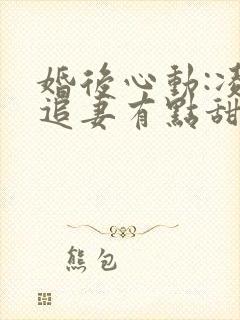 婚後心動:凌
追妻有點甜
熊包